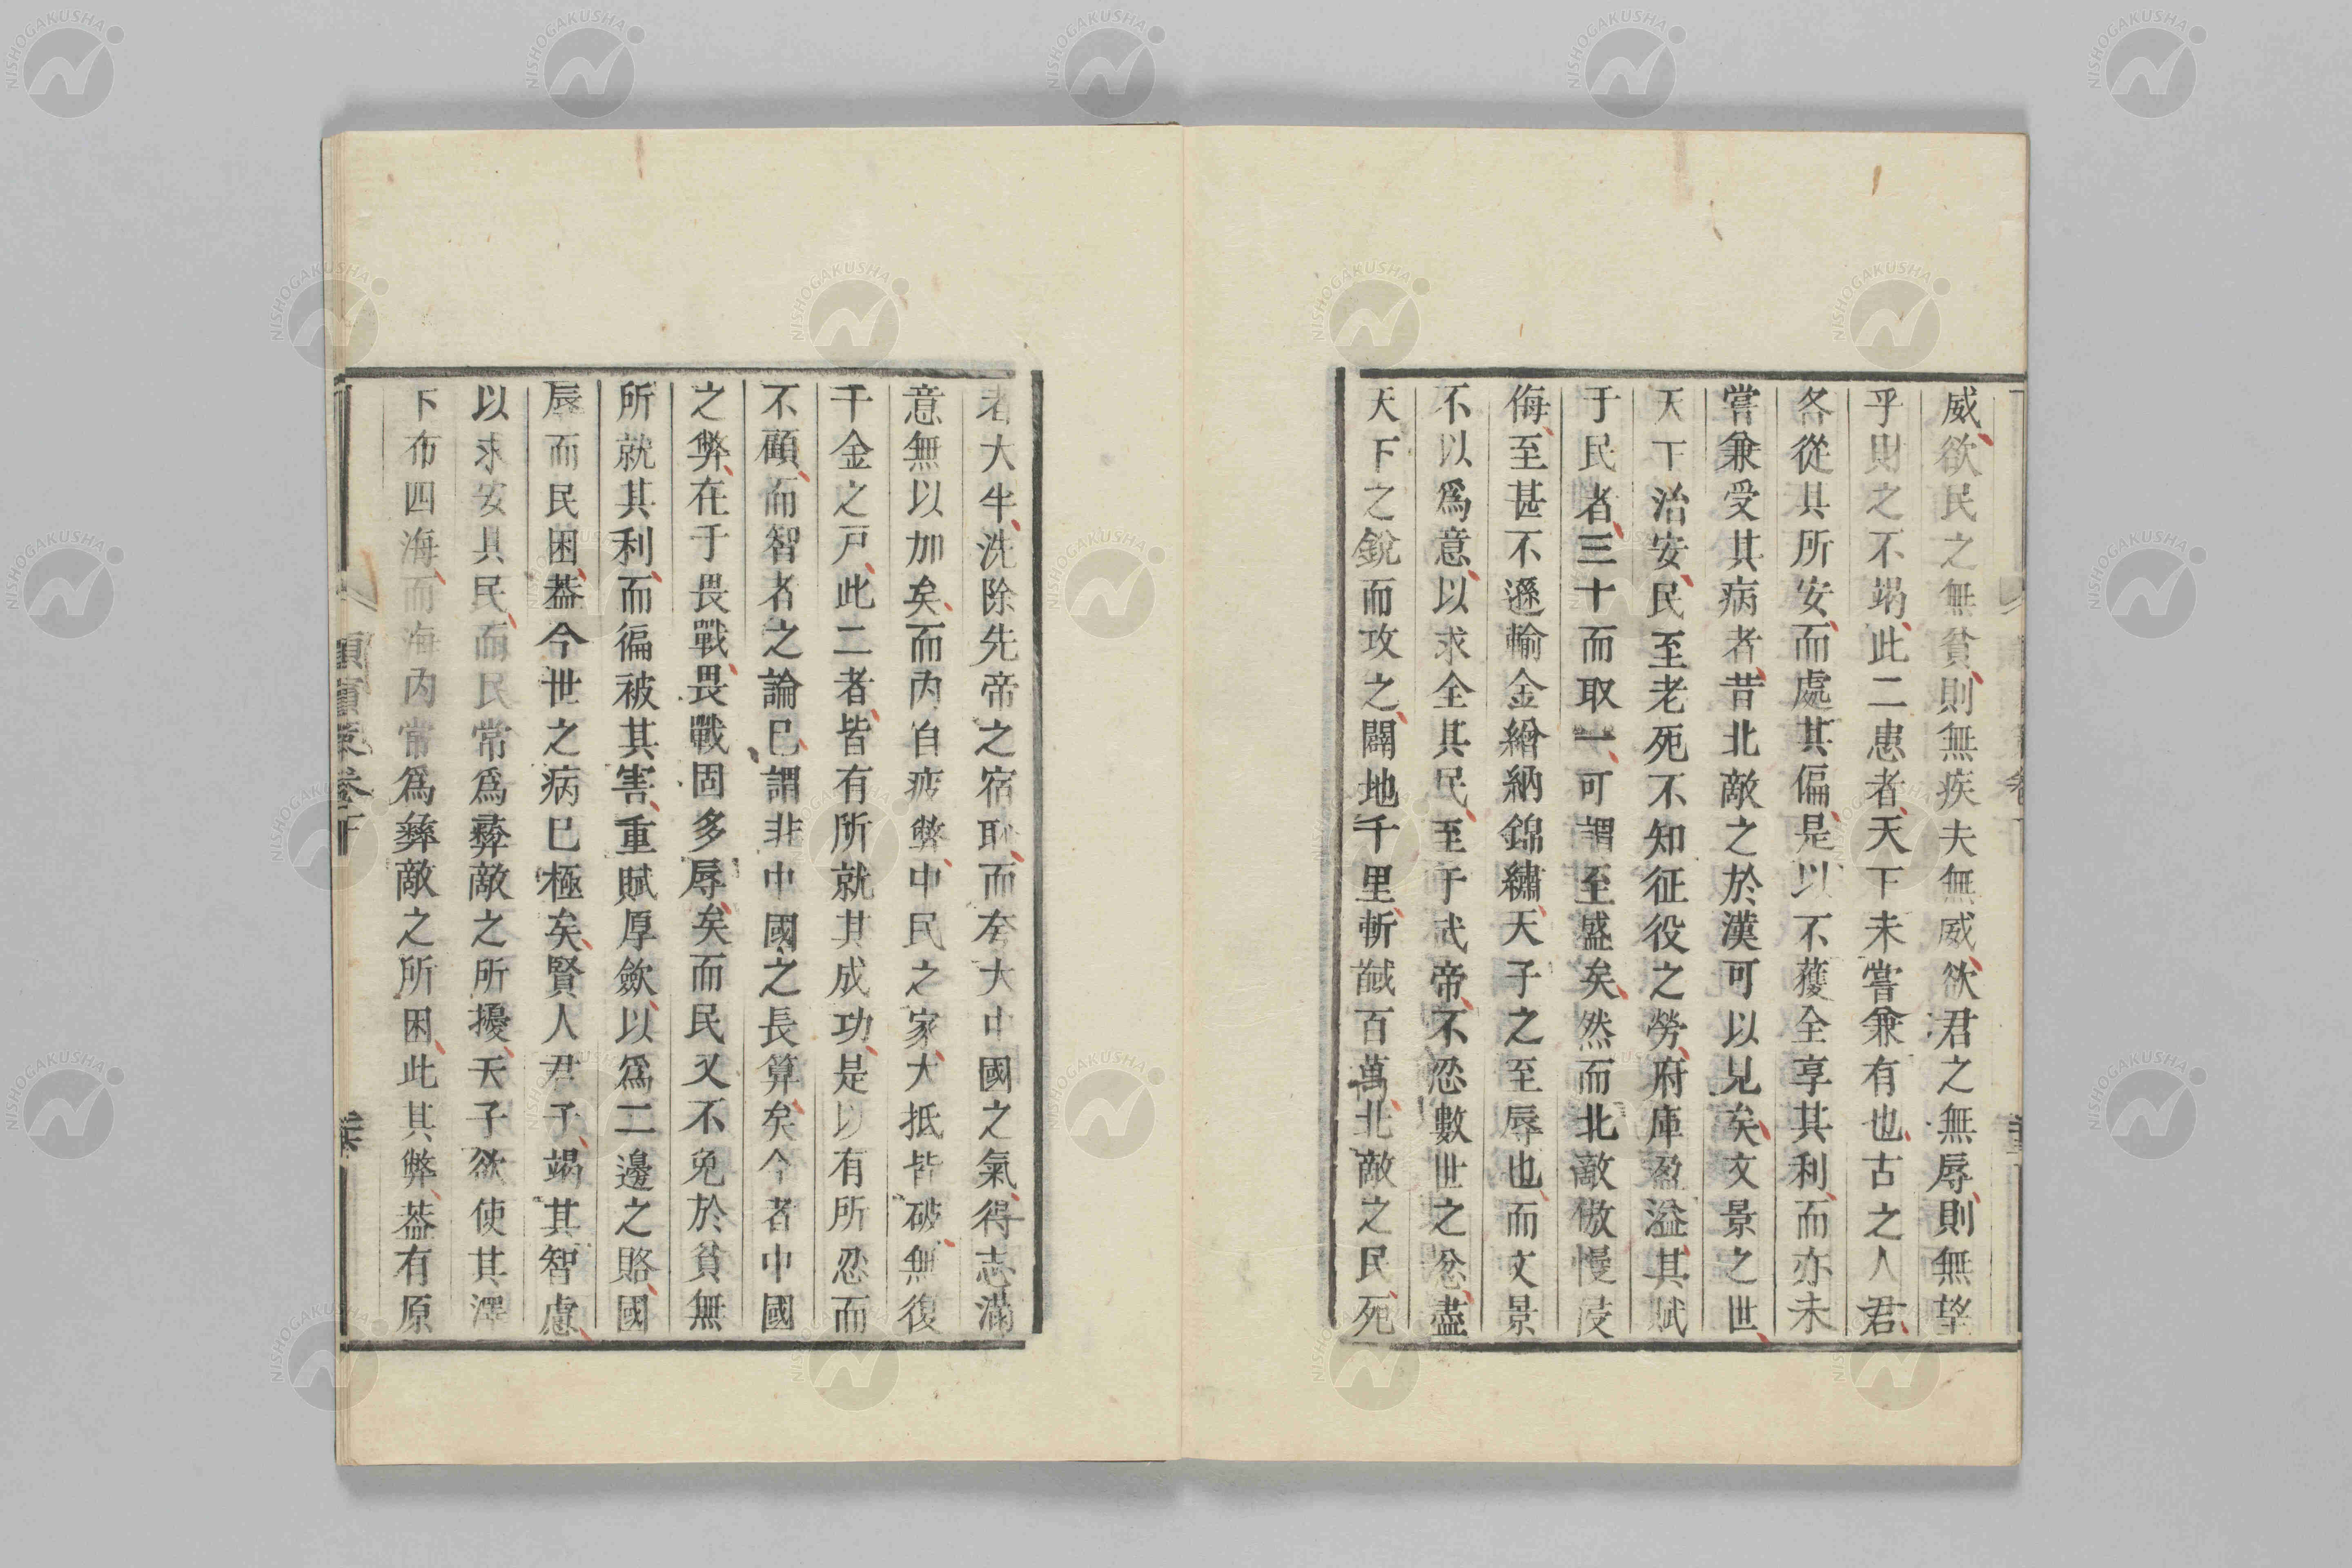 威欲民之無貧則無疾夫無威欲君之無辱則無望
乎財之不竭此二患者天下未嘗兼有也古之人君
各從其所安而處其偏是以不獲全享其利而亦未
嘗兼受其病者昔北敵之於漢可以見矣文景之世
天下治安民至老死不知征役之勞府庫盈溢其賦
于民者三十而取一可謂至盛矣然而北敵傲慢侵
侮至甚不遜輸金繒納錦繡天子之至辱也而文景
不以爲意以求全其民至于武帝不忍數世之忿盡
天下之銳而攻之闢地千里斬馘百萬北敵之民死
者大半洗除先帝之宿恥而夸大中國之氣得志滿
意無以加矣而內自疲弊中民之家大抵皆破無復
千金之戸此二者皆有所就其成功是以有所忍而
不顧而智者之論已謂非中國之長算矣今者中國
之弊在于畏戰畏戰固多辱矣而民又不免於貧無
所就其利而徧被其害重賦厚歛以爲二邊之賂國
辱而民困葢今世之病已極矣賢人君子竭其智慮
以求安其民而民常爲彛敵之所擾天子欲使其澤
下布四海而海內常爲彛敵之所困此其弊葢有原
卷下
NISHOGAKUSHA